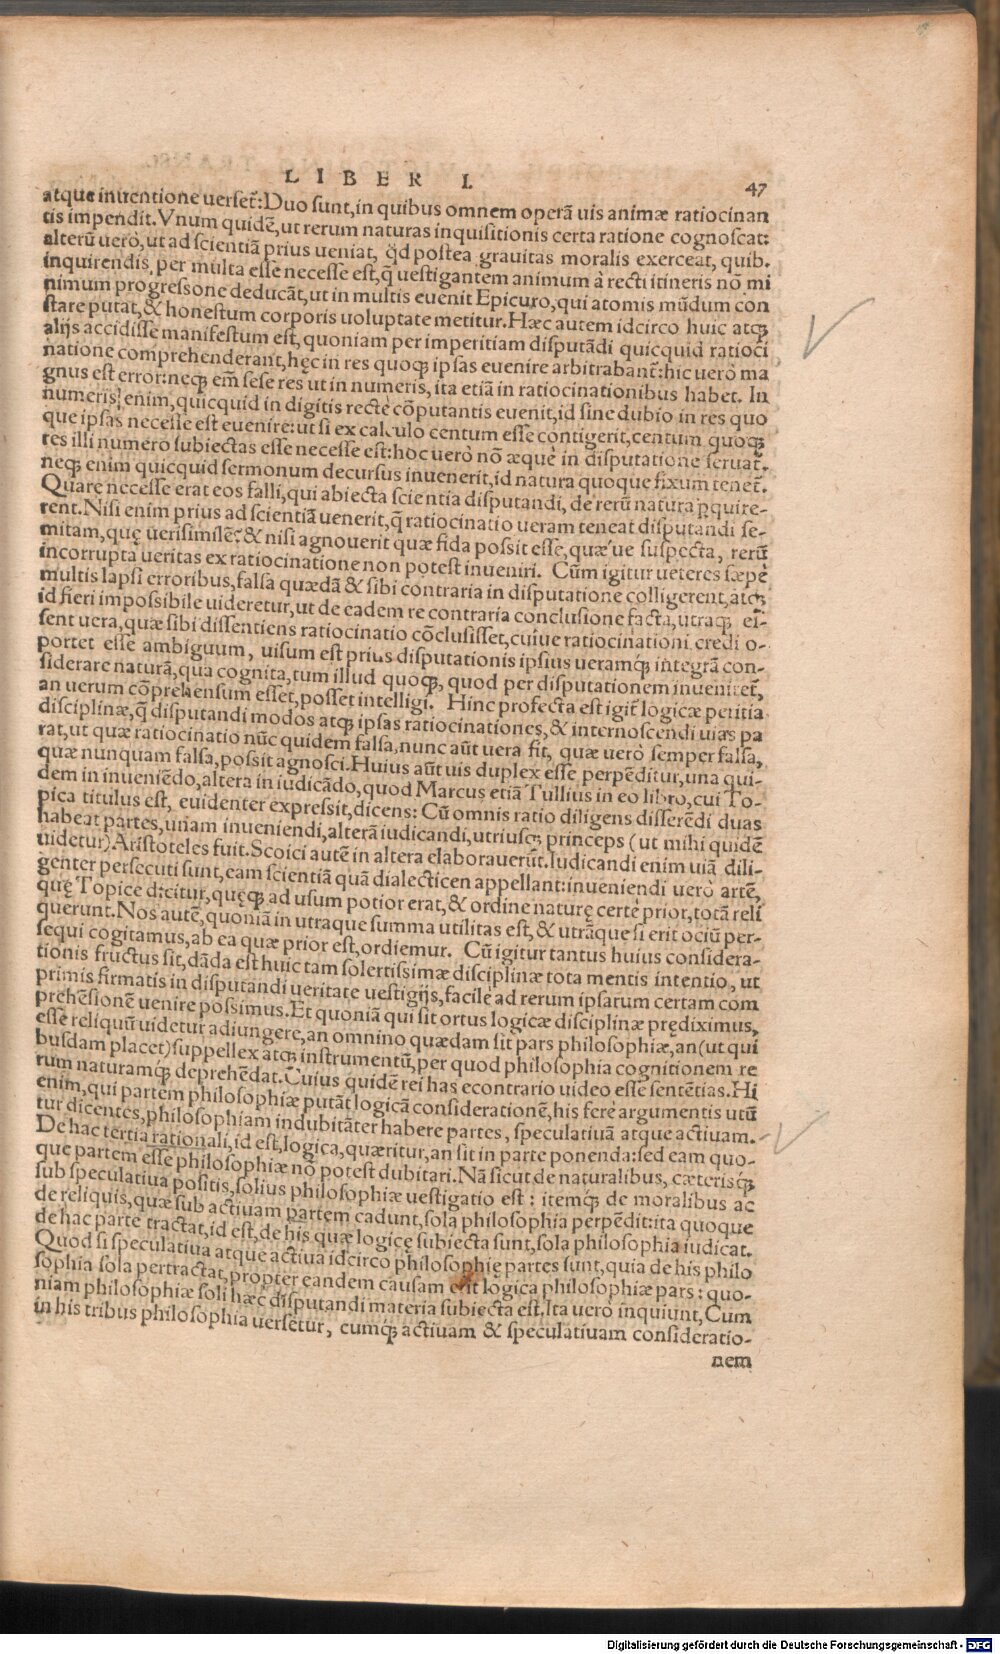 LIBER I. 47
atque inuentione uerset̃: Duo sunt, in quibus omnem operã uis animæ ratiocinan
tis impendit. Vnum quidẽ, ut rerum naturas inquisitionis certa ratione cognoscat:
alterũ uerò, ut ad scientiã prius ueniat, q̃d postea grauitas moralis exerceat, quib.
inquirendis per multa esse necesse est, q̃ uestigantem animum à recti itineris nõ mi
nimum progressone deducãt, ut in multis euenit Epicuro, qui atomis mũdum con
stare putat, & honestum corporis uoluptate metitur. Hæc autem idcirco huic atq;
alijs accidisse manifestum est, quoniam per imperitiam disputãdi quicquid ratioci
natione comprehenderant, hęc in res quoq; ipsas euenire arbitrabant̃: hic uerò ma
gnus est error: neq; em̃ sese res ut in numeris, ita etiã in ratiocinationibus habet. In
numeris enim, quicquid in digitis rectè cõputantis euenit, id sine dubio in res quo
que ipsas necesse est euenire: ut si ex calculo centum esse contigerit, centum quoq;
res illi numero subiectas esse necesse est: hoc uerò nõ æquè in disputatione seruat̃.
neq; enim quicquid sermonum decursus inuenerit, id natura quoque fixum tenet̃.
Quare necesse erat eos falli, qui abiecta scientia disputandi, de rerũ natura ꝑquire-
rent. Nisi enim prius ad scientiã uenerit, q̃ ratiocinatio ueram teneat disputandi se-
mitam, quę uerisimilẽ: & nisi agnouerit quæ fida possit esse, quæ'ue suspecta, rerũ
incorrupta ueritas ex ratiocinatione non potest inueniri. Cũm igitur ueteres sæpè
multis lapsi erroribus, falsa quædã & sibi contraria in disputatione colligerent, atq;
id fieri impossibile uideretur, ut de eadem re contraria conclusione facta, utraq; es-
sent uera, quæ sibi dissentiens ratiocinatio cõclusisset, cui'ue ratiocinationi credi o-
portet esse ambiguum, uisum est prius disputationis ipsius ueramq́; integrã con-
siderare naturã, qua cognita, tum illud quoq;, quod per disputationem inueniret̃,
an uerum cõprehensum esset, posset intelligi. Hinc profecta est igit̃ logicæ peritia
disciplinæ, q̃ disputandi modos atq; ipsas ratiocinationes, & internoscendi uias pa
rat, ut quæ ratiocinatio nũc quidem falsa, nunc aũt uera fit, quæ uerò semper falsa,
quæ nunquam falsa, possit agnosci. Huius aũt uis duplex esse perpẽditur, una qui-
dem in inueniẽdo, altera in iudicãdo, quod Marcus etiã Tullius in eo libro, cui To-
pica titulus est, euidenter expressit, dicens: Cũ omnis ratio diligens disserẽdi duas
habeat partes, unam inueniendi, alterã iudicandi, utriusq; princeps (ut mihi quidẽ
uidetur) Aristoteles fuit. Scoici autẽ in altera elaborauerũt. Iudicandi enim uiã dili-
genter persecuti sunt, eam scientiã quã dialecticen appellant: inueniendi uerò artẽ,
quę Topice dicitur, quęq; ad usum potior erat, & ordine naturę certè prior, totã reli
querunt. Nos autẽ, quoniã in utraque summa utilitas est, & utrãque si erit ociũ per-
sequi cogitamus, ab ea quæ prior est, ordiemur. Cũ igitur tantus huius considera-
tionis fructus sit, dãda est huic tam solertissimæ disciplinæ tota mentis intentio, ut
primis firmatis in disputandi ueritate uestigijs, facilè ad rerum ipsarum certam com
prehẽsionẽ uenire possimus. Et quoniã qui sit ortus logicæ disciplinæ prędiximus,
esse reliquũ uidetur adiungere, an omnino quædam sit pars philosophiæ, an (ut qui
busdam placet) suppellex atq; instrumentũ, per quod philosophia cognitionem re
rum naturamq́; deprehẽdat. Cuius quidẽ rei has econtrario uideo esse sentẽtias. Hi
enim, qui partem philosophiæ putãt logicã considerationẽ, his ferè argumentis utũ
tur dicentes, philosophiam indubitãter habere partes, speculatiuã atque actiuam.
De hac tertia rationali, id est, logica, quæritur, an sit in parte ponenda: sed eam quo-
que partem esse philosophiæ nõ potest dubitari. Nã sicut de naturalibus, cæterisq́;
sub speculatiua positis, solius philosophiæ uestigatio est: itemq́; de moralibus ac
de reliquis, quæ sub actiuam partem cadunt, sola philosophia perpẽdit: ita quoque
de hac parte tractat, id est, de his quæ logicę subiecta sunt, sola philosophia iudicat.
Quod si speculatiua atque actiua idcirco philosophię partes sunt, quia de his philo
sophia sola pertractat, propter eandem causam erit logica philosophiæ pars: quo-
niam philosophiæ soli hæc disputandi materia subiecta est. Ita uerò inquiunt, Cum
in his tribus philosophia uersetur, cumq́; actiuam & speculatiuam consideratio-
nem
Digitalisierung gefördert durch die Deutsche Forschungsgemeinschaft - DFG